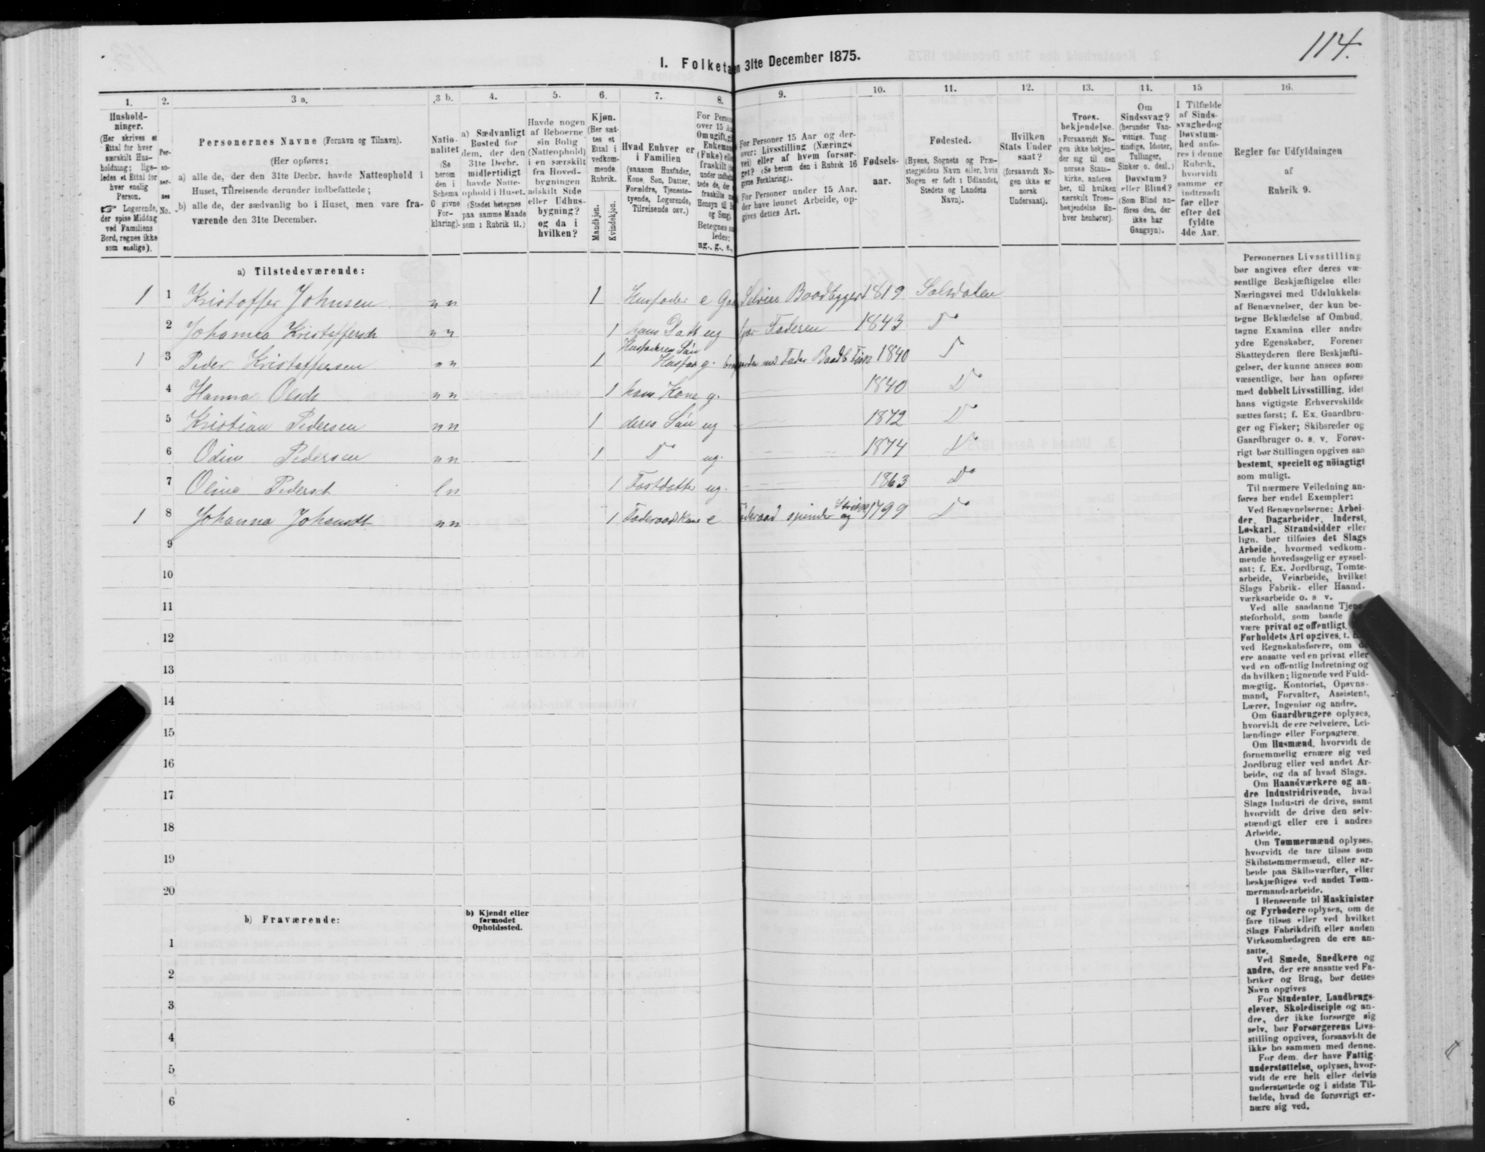 114.
I. Folketa en 31te December 1875.
1. 2. 3 a. 3 b. 4. 5. 6. 7. 8. 9. 10. 11. 12. 13. 14. 15 16.
Hushold-
ninger.
(Her skrives et
Ettal for hver
særskilt Hus-
holdning; lige-
ledes et Ettal for
hver enslig
Person.
Logerende,
der spise Middag
ved Familiens
Bord, regnes ikke
som enslige).
Per-
so-
ner-
nes
No.
Personernes Navne (Fornavn og Tilnavn).
(Her opføres:
a) alle de, der den 31te Decbr. havde Natteophold i
Huset, Tilreisende derunder indbefattede;
b) alle de, der sædvanlig bo i Huset, men vare fra-
værende den 31te December.
Natio-
nalitet
(Se
herom
den i
Schema
G givne
For-
klaring).
a) Sædvanligt
Bosted for
dem, der den
31te Decbr.
midlertidigt
havde Natte-
ophold i Huset.
(Stedet betegnes
paa samme Maade
som i Rubrik 11.)
Havde nogen
af Beboerne
sin Bolig
(Natteophold)
i en særskilt
fra Hoved-
bygningen
adskilt Side
eller Udhus-
bygning?
og da i
hvilken?
Kjøn.
(Her sæt-
tes et
Ettal i
vedkom-
mende
Rubrik.
Mandkjøn.
Kvindekjøn.
Hvad Enhver er
i Familien
(saasom Husfader,
Kone, Søn, Datter,
Forældre, Tjeneste-
tyende, Logerende,
Tilreisende osv.)
For Perso
over 15 Aa
Om ugift, gi
Enkeman
(Fnke) elle
fraskilt
For Personer 15 Aar og der-
over: Livsstilling (Nærings
vei) eller af hvem forsør-
get? (Se herom den i Rubrik 16
givne Forklaring).
For Personer under 15 Aar,
der have lønnet Arbeide, op-
gives dettes Art.
Fødsels-
aar.
Fødested.
(Byens, Sognets og Præ-
stegjeldets Navn eller, hvis
Nogen er født i Udlandet,
Stedets og Landets
Navn).
Hvilken
Stats Under
saat?
(forsaavidt No-
gen ikke er
norsk
Undersaat).
Troes-
bekjendelse.
(Forsaavidt No-
gen ikke bekjen-
der sig til den
norske Stats-
kirke, anføres
her, til hvilken
særskilt Troes-
bekjendelse En-
hver henhører).
Om
Sindssvag?
(herunder Van-
vittige, Idioter,
Tullinger,
Sinker o. desl.)
Døvstum?
eller Blind?
(Som Blind an-
føres den, der
ikke har
Gangsyn).
I Tilfælde
af Sinds-
svaghed og
Døvstum-
hed anfø-
res i denne
Rubrik,
hvorvidt
samme er
indtraadt
før eller
efter det
fyldte
4de Aar.
Regler for Udfyldningen
af
Rubrik 9.
a) Tilstedeværende:
1 1 Kristoffer Johnsen n n 1 Husfader e Selveier Baadbygger 1819 Salsdalen
2 Johanna Kristoffersdt n n 1 hans Datt ug for Faderen 1843 Do
1 3 Peder Kristoffersen n n 1 Husfaderens Søn Husfar g. med Fader Baadb. Fisk 1840 Do
4 Hanna Olsdt n n 1 hans Kone g. 1840 Do
5 Kristian Pedersen n n 1 deres Søn ug 1872 Do
6 Odin Pedersen n n 1 Do ug. 1874 Do
7 Oline Pedersdt l n 1 Fostdatter ug. 1863 Do
1 8 Johanna Johansdt n n 1 Føderaadskone e føderaad spinder og Strikker 1799 Do
9
10
11
12
13
14
15
16
17
18
19
20
b) Fraværende:
b) Kjendt eller
formodet
Opholdssted.
1
2
3
4
5
6
Personernes Livsstilling
bør angives efter deres væ-
sentlige Beskjæftigelse eller
Næringsvei med Udelukkelse
af Benævnelser, der kun be-
tegne Beklædelse af Ombud,
tagne Examina eller andre
ydre Egenskaber. Forener
Skatteyderen flere Beskjæfti-
gelser, der kunne ansees som
væsentlige, bør han opføres
med dobbelt Livsstilling, idet
hans vigtigste Erhvervskilde
sættes først; f. Ex. Gaardbru-
ger og Fisker; Skibsreder og
Gaardbruger o. s. v. Forøv-
rigt bør Stillingen opgives saa
bestemt, specielt og nøiagtigt
som muligt.
Til nærmere Veiledning an-
føres her endel Exempler:
Ved Benævnelserne: Arbei-
der, Dagarbeider, Inderst,
Løskarl, Strandsidder eller
lign. bør tilføies det Slags
Arbeide, hvormed vedkom-
mende hovedsagelig er syssel-
sat; f. Ex. Jordbrug, Tomte-
arbeide, Veiarbeide, hvilket
Slags Fabrik- eller Haand-
værksarbeide o. s. v.
Ved alle saadanne Tjene-
steforhold, som baade
være privat og offentligt,
Forholdets Art opgives, t.
ved Regnskabsførere, om de
ere ansatte ved en privat eller
ved en offentlig Indretning og
da hvilken; lignende ved Fuld-
mægtig, Kontorist, Opsyns-
mand, Forvalter, Assistent,
Lærer, Ingeniør og andre.
Om Gaardbrugere oplyses,
hvorvidt de ere Selveiere, Lei-
lændinge eller Forpagtere.
Om Husmænd, hvorvidt de
fornemmelig ernære sig ved
Jordbrug eller ved andet Ar-
beide, og da af hvad Slags.
Om Haandværkere og an-
dre Industridrivende, hvad
Slags Industri de drive, samt
hvorvidt de drive den selv-
stændigt eller ere i andres
Arbeide.
Om Tømmermænd oplyses,
hvorvidt de fare tilsøs som
Skibstømmermænd, eller ar-
beide paa Skibsværfter, eller
beskjæftiges ved andet Tøm-
mermandsarbeide.
I Henseende til Maskinister
og Fyrbødere oplyses, om de
fare tilsøs eller ved hvilket
Slags Fabrikdrift eller anden
Virksomhedsgren de ere an-
satte.
Ved Smede, Snedkere og
andre, der ere ansatte ved Fa-
briker og Brug, bør dettes
Navn opgives
For Studenter, Landbrugs-
elever, Skoledisciple og an-
dre, der ikke forsørge sig
selv, bør Forsørgerens Livs-
stilling opgives, forsaavidt de
ikke bo sammen med denne.
For dem, der have Fattig-
understøttelse, oplyses, hvor-
vidt de ere helt eller delvis
understøttede og i sidste Til-
fælde, hvad de forøvrigt er-
nære sig ved.